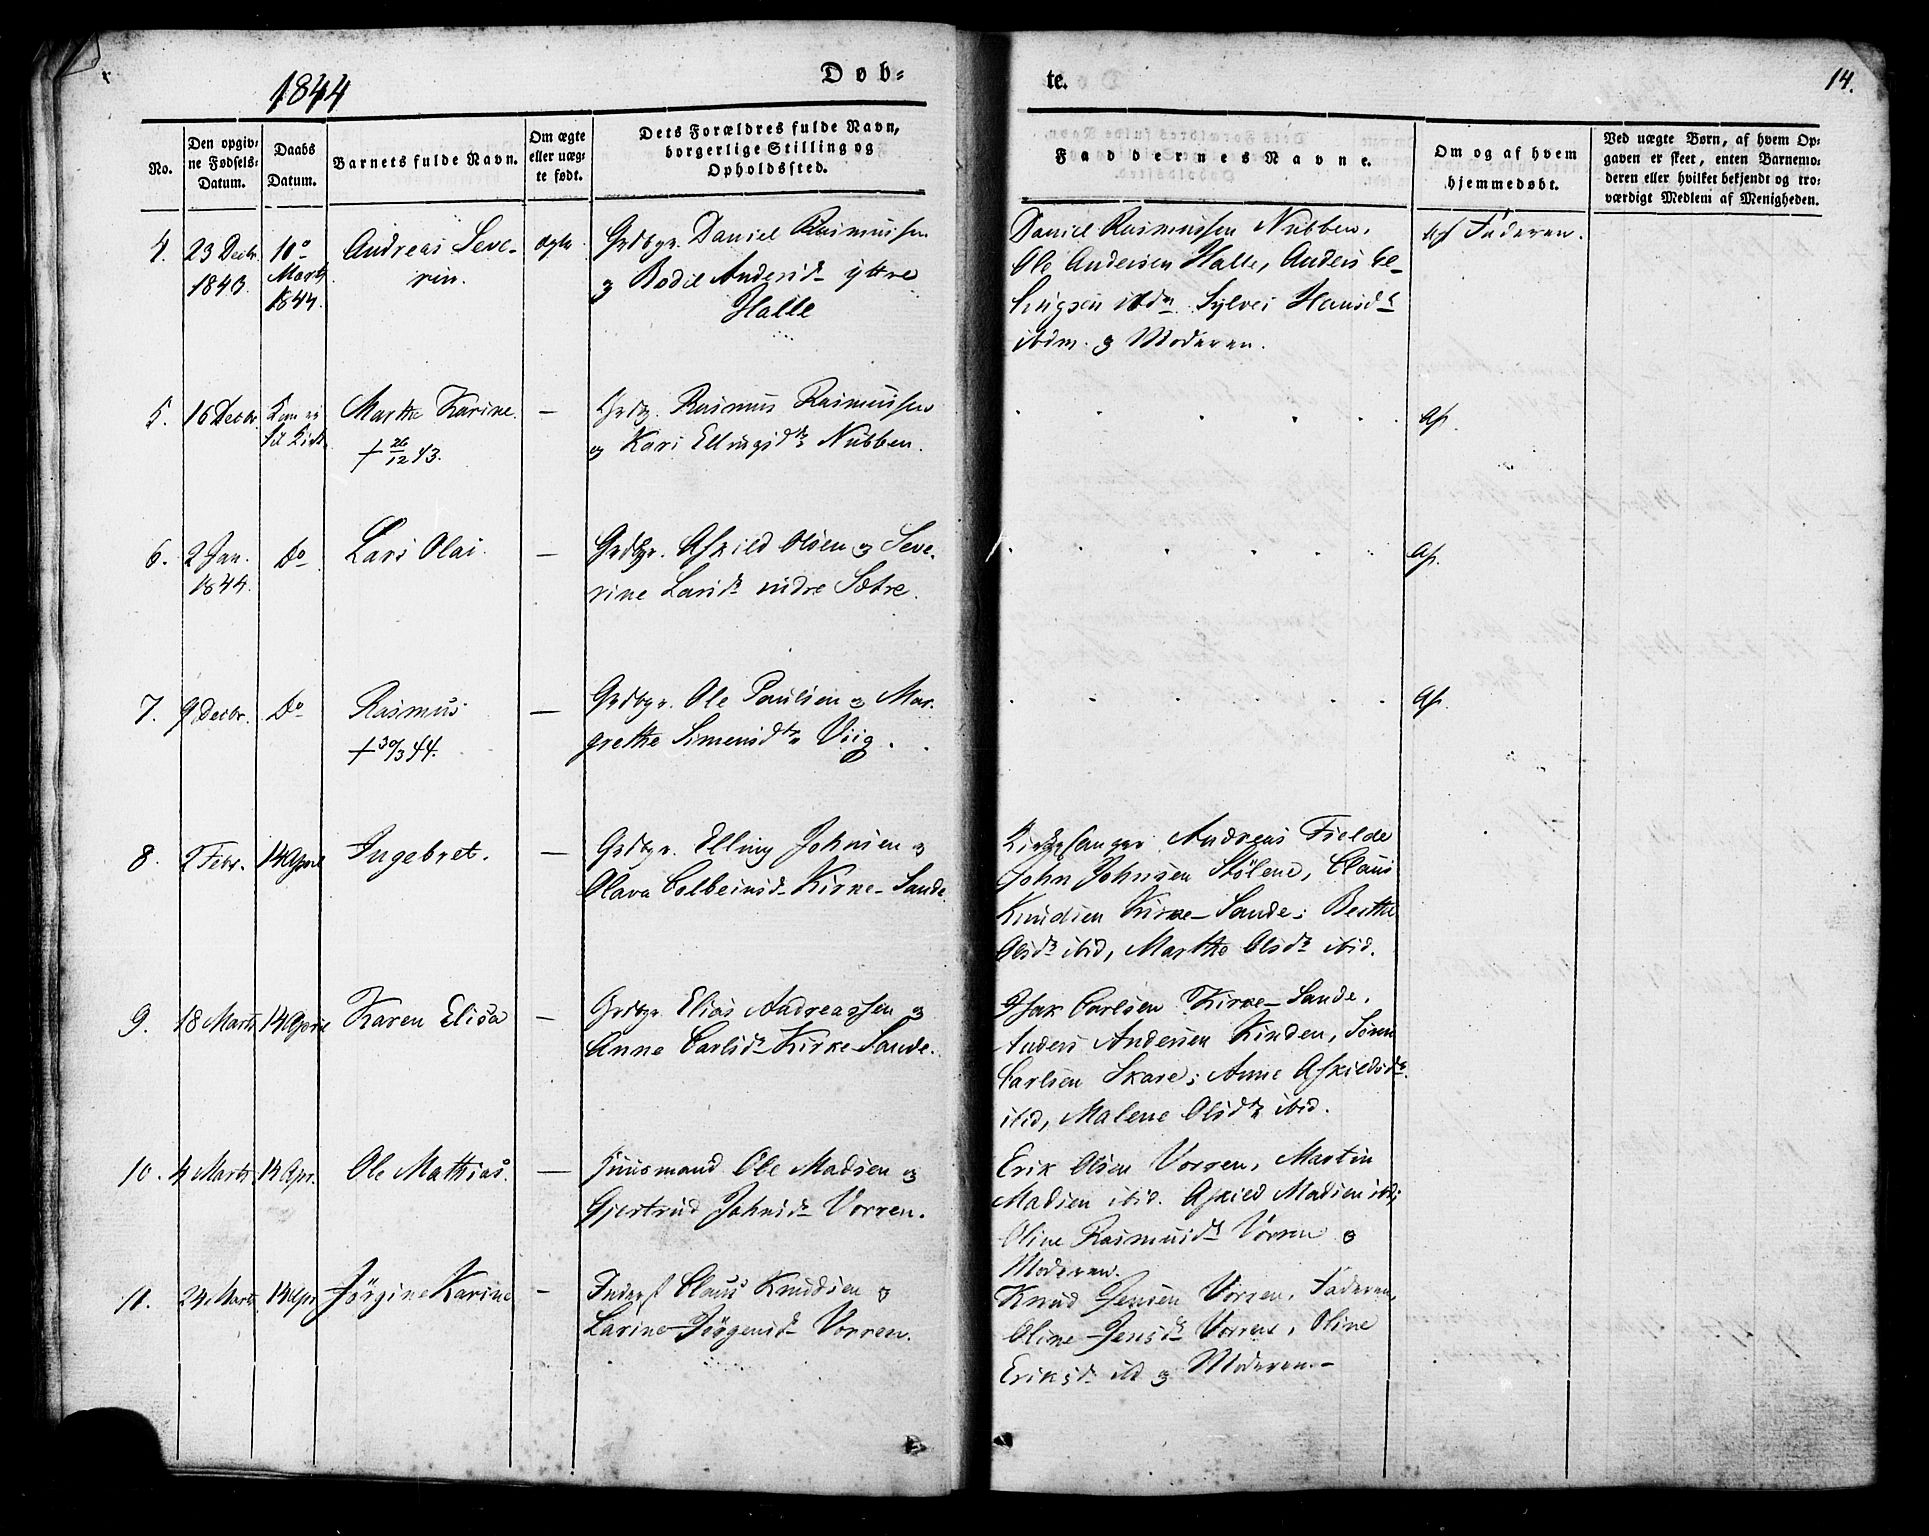 1844
Døb-
te.
14.
No.
Den opgiv-
ne Fødsels-
Datum.
Daabs
Datum.
Barnets fulde Navn.
Om ægte
eller uæg-
te født.
Dets Forældres fulde Navn,
borgerlige Stilling og
Opholdssted.
Faddernes Navne.
Om og af hvem
hjemmedøbt.
Ved uægte Børn, af hvem Op-
gaven er skeet, enten Barnemo-
deren eller hvilket bekjendt og tro-
værdigt Medlem af Menigheden.
4.
23 Decbr
1843.
10de
Marts
1844.
Andreas Seve-
rin.
ægte
Grdbgr. Daniel Rasmussen
og Bodil Andersd. yttre
Halle
Daniel Rasmussen Nubben,
Ole Andersen Halle, Anders
ibdm. Sylvei Hansdr
ibdm. og Moderen.
af Faderen.
5.
16 Decbr.
Kom ei
til Kirke
Marthe Karine.
† 26/12 43.
—
Grdbgr. Rasmus Rasmussen
og Kari Ellingsdtr Nubben.
6.
2 Jan.
1844.
Do
Lars Olai.
—
Grdbgr. Askild Olsen og Seve-
rine Larsdr indre Sætre.
7.
9 Decbr.
Do
Rasmus
† 30/3 44.
—
Grdbgr. Ole Paulsen og Mar-
grethe Simensdtr Viig.
8.
2 Febr.
14 April
Ingebret.
—
Grdbgr. Elling Johnsen og
Olava Colbeinsd. Kirke-Sande.
Kirkesanger Andreas Fielde
John Johnsen Stølene, Claus
Knudsen Kirke-Sande; Berthe
Olsdr ibid, Marthe Olsdr ibid.
9.
18 Marts
14 April
Karen Elisa
—
Grdbgr. Elias Andreassen og
Anne Carlsdr Kirke-Sande.
Isak Carlsen Kirke-Sande,
Anders Andersen Kinden, Søren
Carlsen Skare; Anne Askildsdr
ibid, Malene Olsdtr ibid.
10.
4 Marts
14 Apr.
Ole Mathias.
—
Huusmand Ole Madsen og
Gjertrud Johnsdr Vorren.
Erik Olsen Vorren, Martin
Madsen ibid. Askild Madsen ibd;
Oline Rasmusdr Vorren og
Moderen.
11.
24 Marts
14 Apr
Jörgine Karine
—
Inderst Claus Knudsen og
Larine Jörgensd. Vorren.
Knud Jensen Vorren, Faderen,
Oline Jensdr Vorren, Oline
Eriksdr ibd og Moderen.-